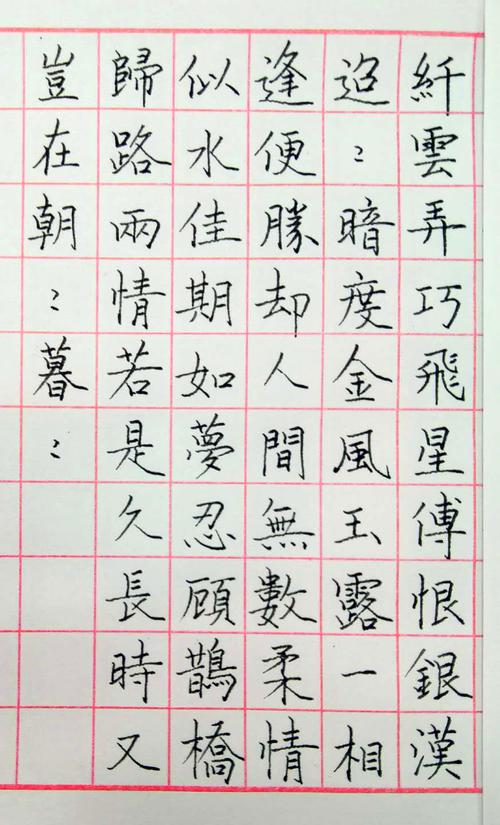 纤雲弄巧飛星傅恨銀漢
迢〻暗度金風玉露一相
逢便勝却人間無數柔情
似水佳期如夢忍顧鵲橋
歸路兩情若是久長時又
豈在朝〻暮〻